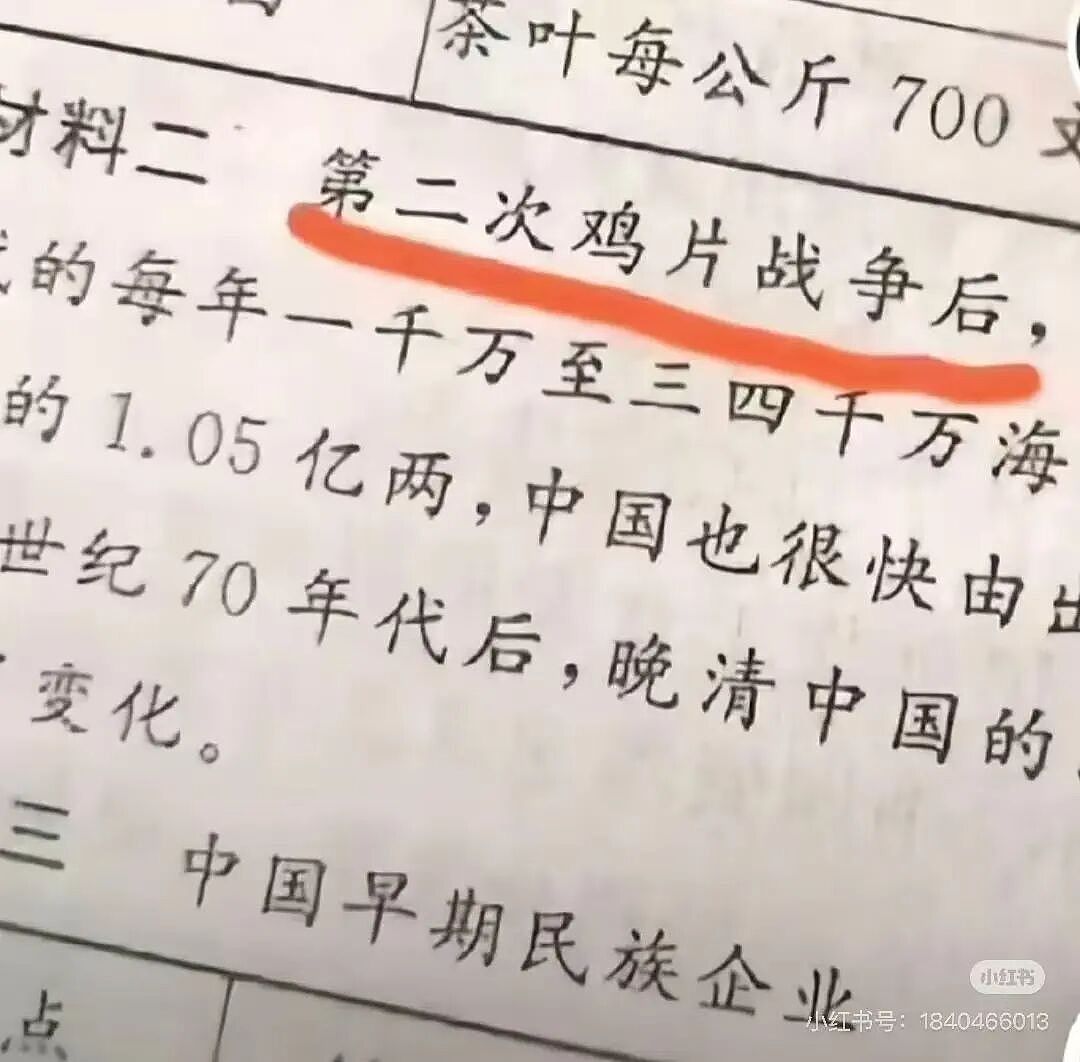 茶叶每公斤 700
材料二 第二次鸡片战争后，
的每年一千万至三四千万海
的 1.05 亿两，中国也很快由出
世纪 70 年代后，晚清中国的
变化。
三 中国早期民族企业
点
小红书
小红书号：1840466013